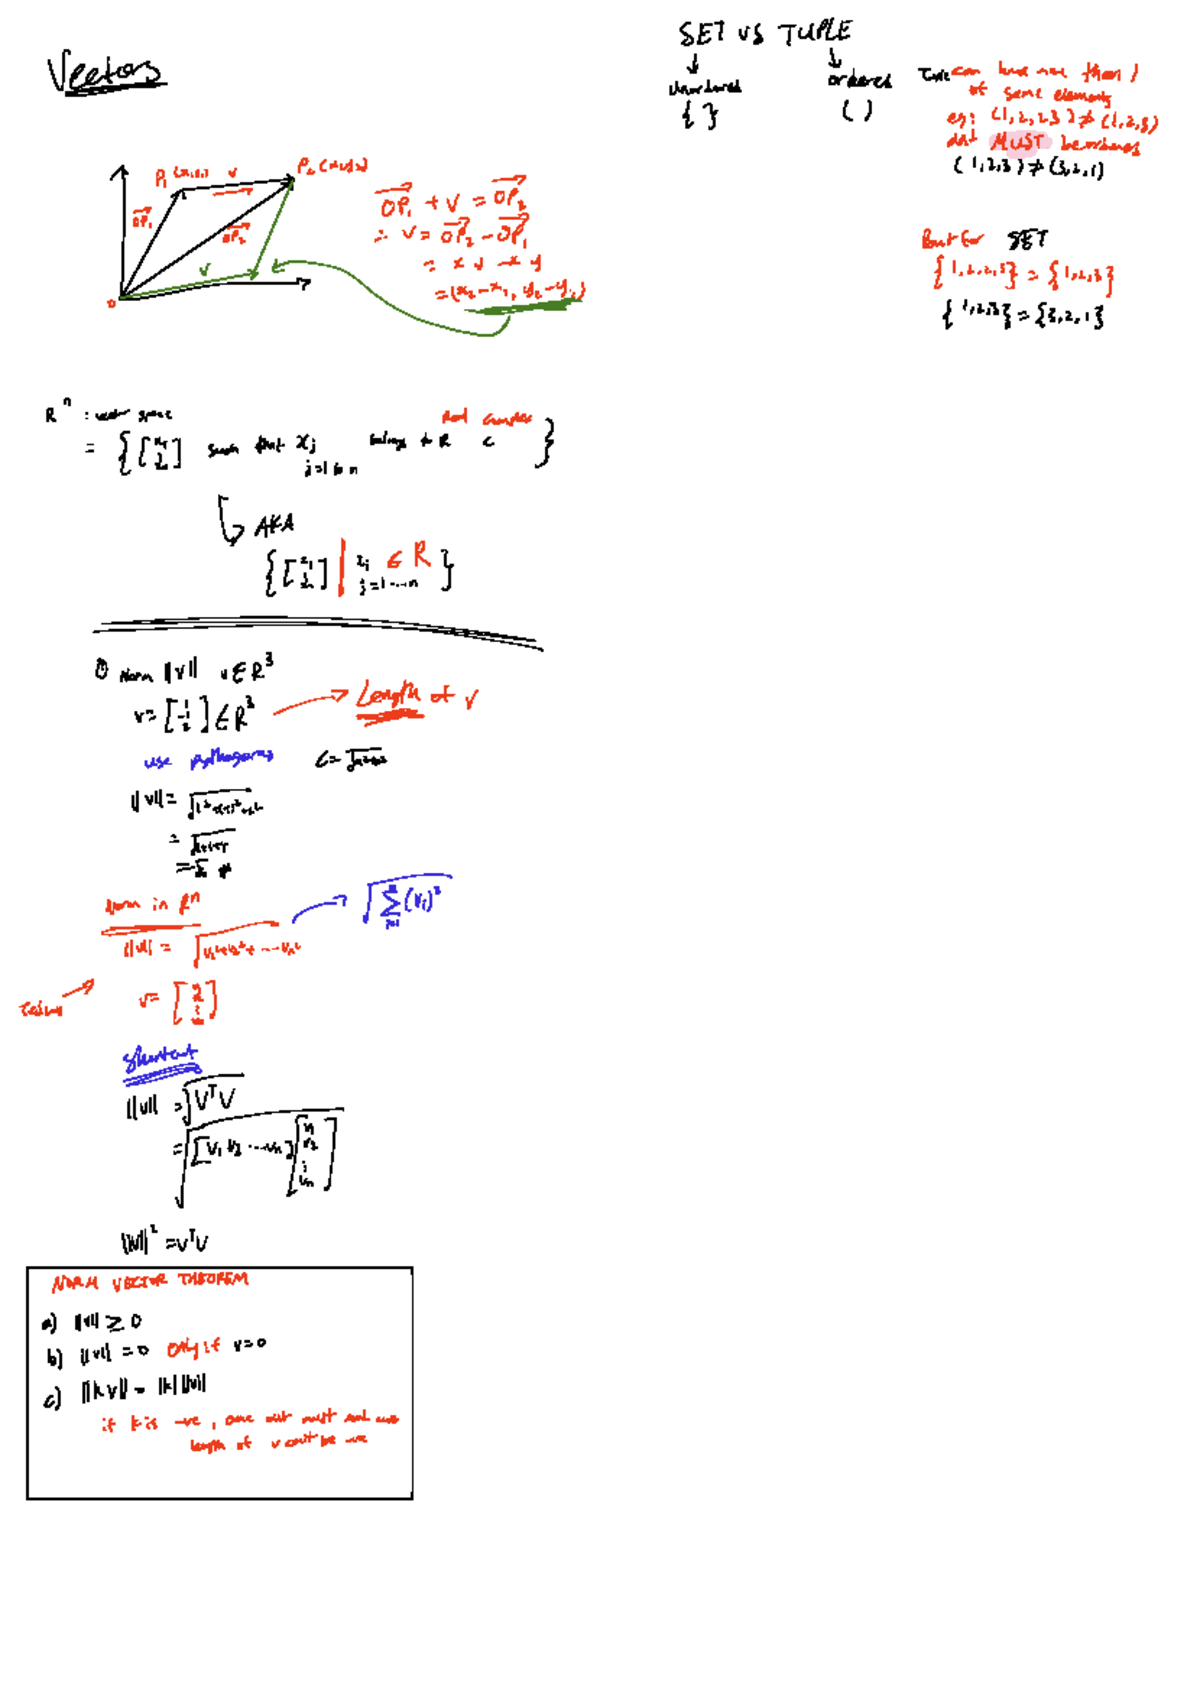 Vectors
P₁ (x₁,y₁) v P₂ (x₂,y₂)
OP₁
OP₂
v
0
OP₁ + v = OP₂
∴ v = OP₂ - OP₁
= (x₂-x₁, y₂-y₁)
SET vs TUPLE
Unordered ordered
{ } ( )
Tuple can have more than 1
of same elements
eg: (1,2,2,3) ≠ (1,2,3)
MUST be ordered
(1,2,3) ≠ (3,2,1)
But for SET
{1,2,2,3} = {1,2,3}
{1,2,3} = {3,2,1}
Rⁿ : vector space
real complex
such that xⱼ belongs to R C }
j=1 to n
AKA
xⱼ ∈ R }
j=1...n
① Norm ||v|| v∈R³
v= ∈R³ Length of v
use pythagoras
||v|| =
Norm in Rⁿ
||v|| = √v₁²+v₂²+...vₙ² √∑(vᵢ)²
v=
Shortcut
||v|| = √VᵀV
= √[v₁ v₂ ...vₙ] [v₁ v₂ ⋮ vₙ]
||v||² = vᵀv
NORM VECTOR THEOREM
a) ||v|| ≥ 0
b) ||v|| = 0 only if v=0
c) ||kv|| = |k| ||v||
if k is -ve,
length of v can't be -ve